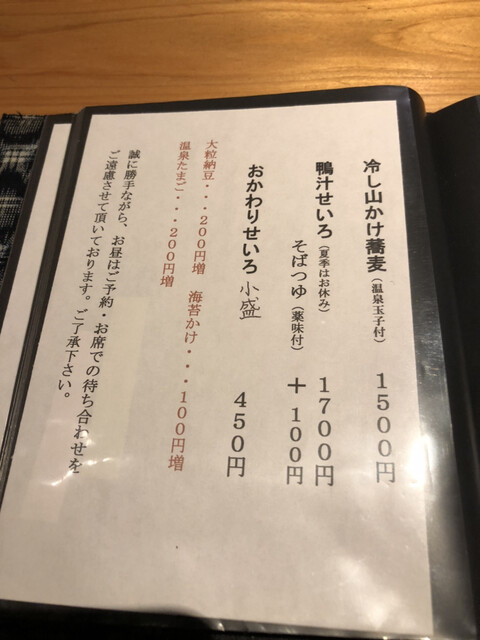 冷し山かけ蕎麦（温泉玉子付） １５００円
鴨汁せいろ（夏季はお休み） １７００円
そばつゆ（薬味付） ＋１００円
おかわりせいろ 小盛 ４５０円
大粒納豆・・・２００円増 海苔かけ・・・１００円増
温泉たまご・・・２００円増
誠に勝手ながら、お昼はご予約・お席での待ち合わせを
ご遠慮させて頂いております。ご了承下さい。